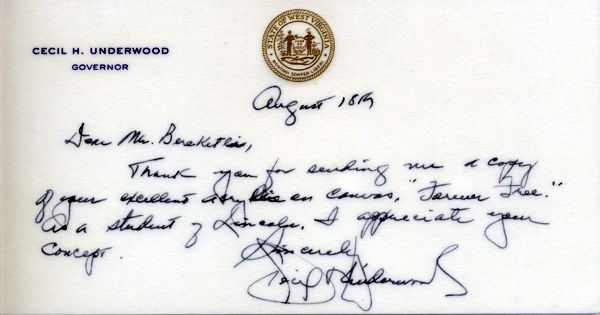 STATE OF WEST VIRGINIA
MONTANI SEMPER LIBERI
CECIL H. UNDERWOOD
GOVERNOR
August 18th
Dear Mr.
Thank you for sending me a copy
of your excellent acrylic on canvas, "Forever Free."
As a student of Lincoln, I appreciate your
concept.
Sincerely
Cecil Underwood